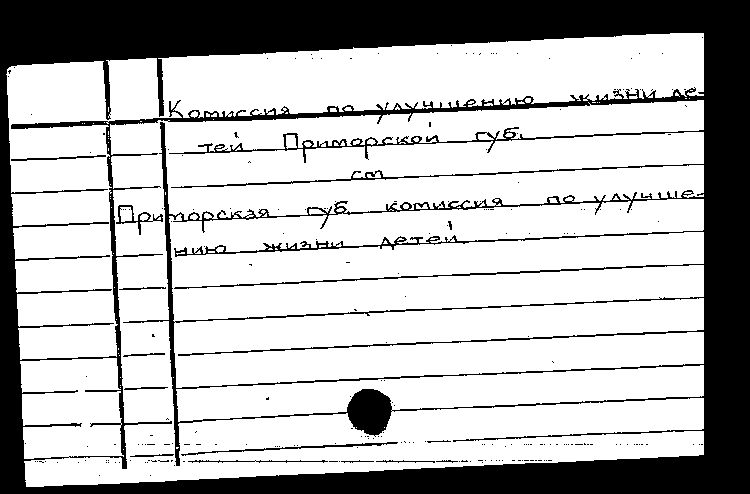 Комиссия по улучшению жизни де-
тей Приморской губ.
см
Приморская губ. комиссия по улучше-
нию жизни детей